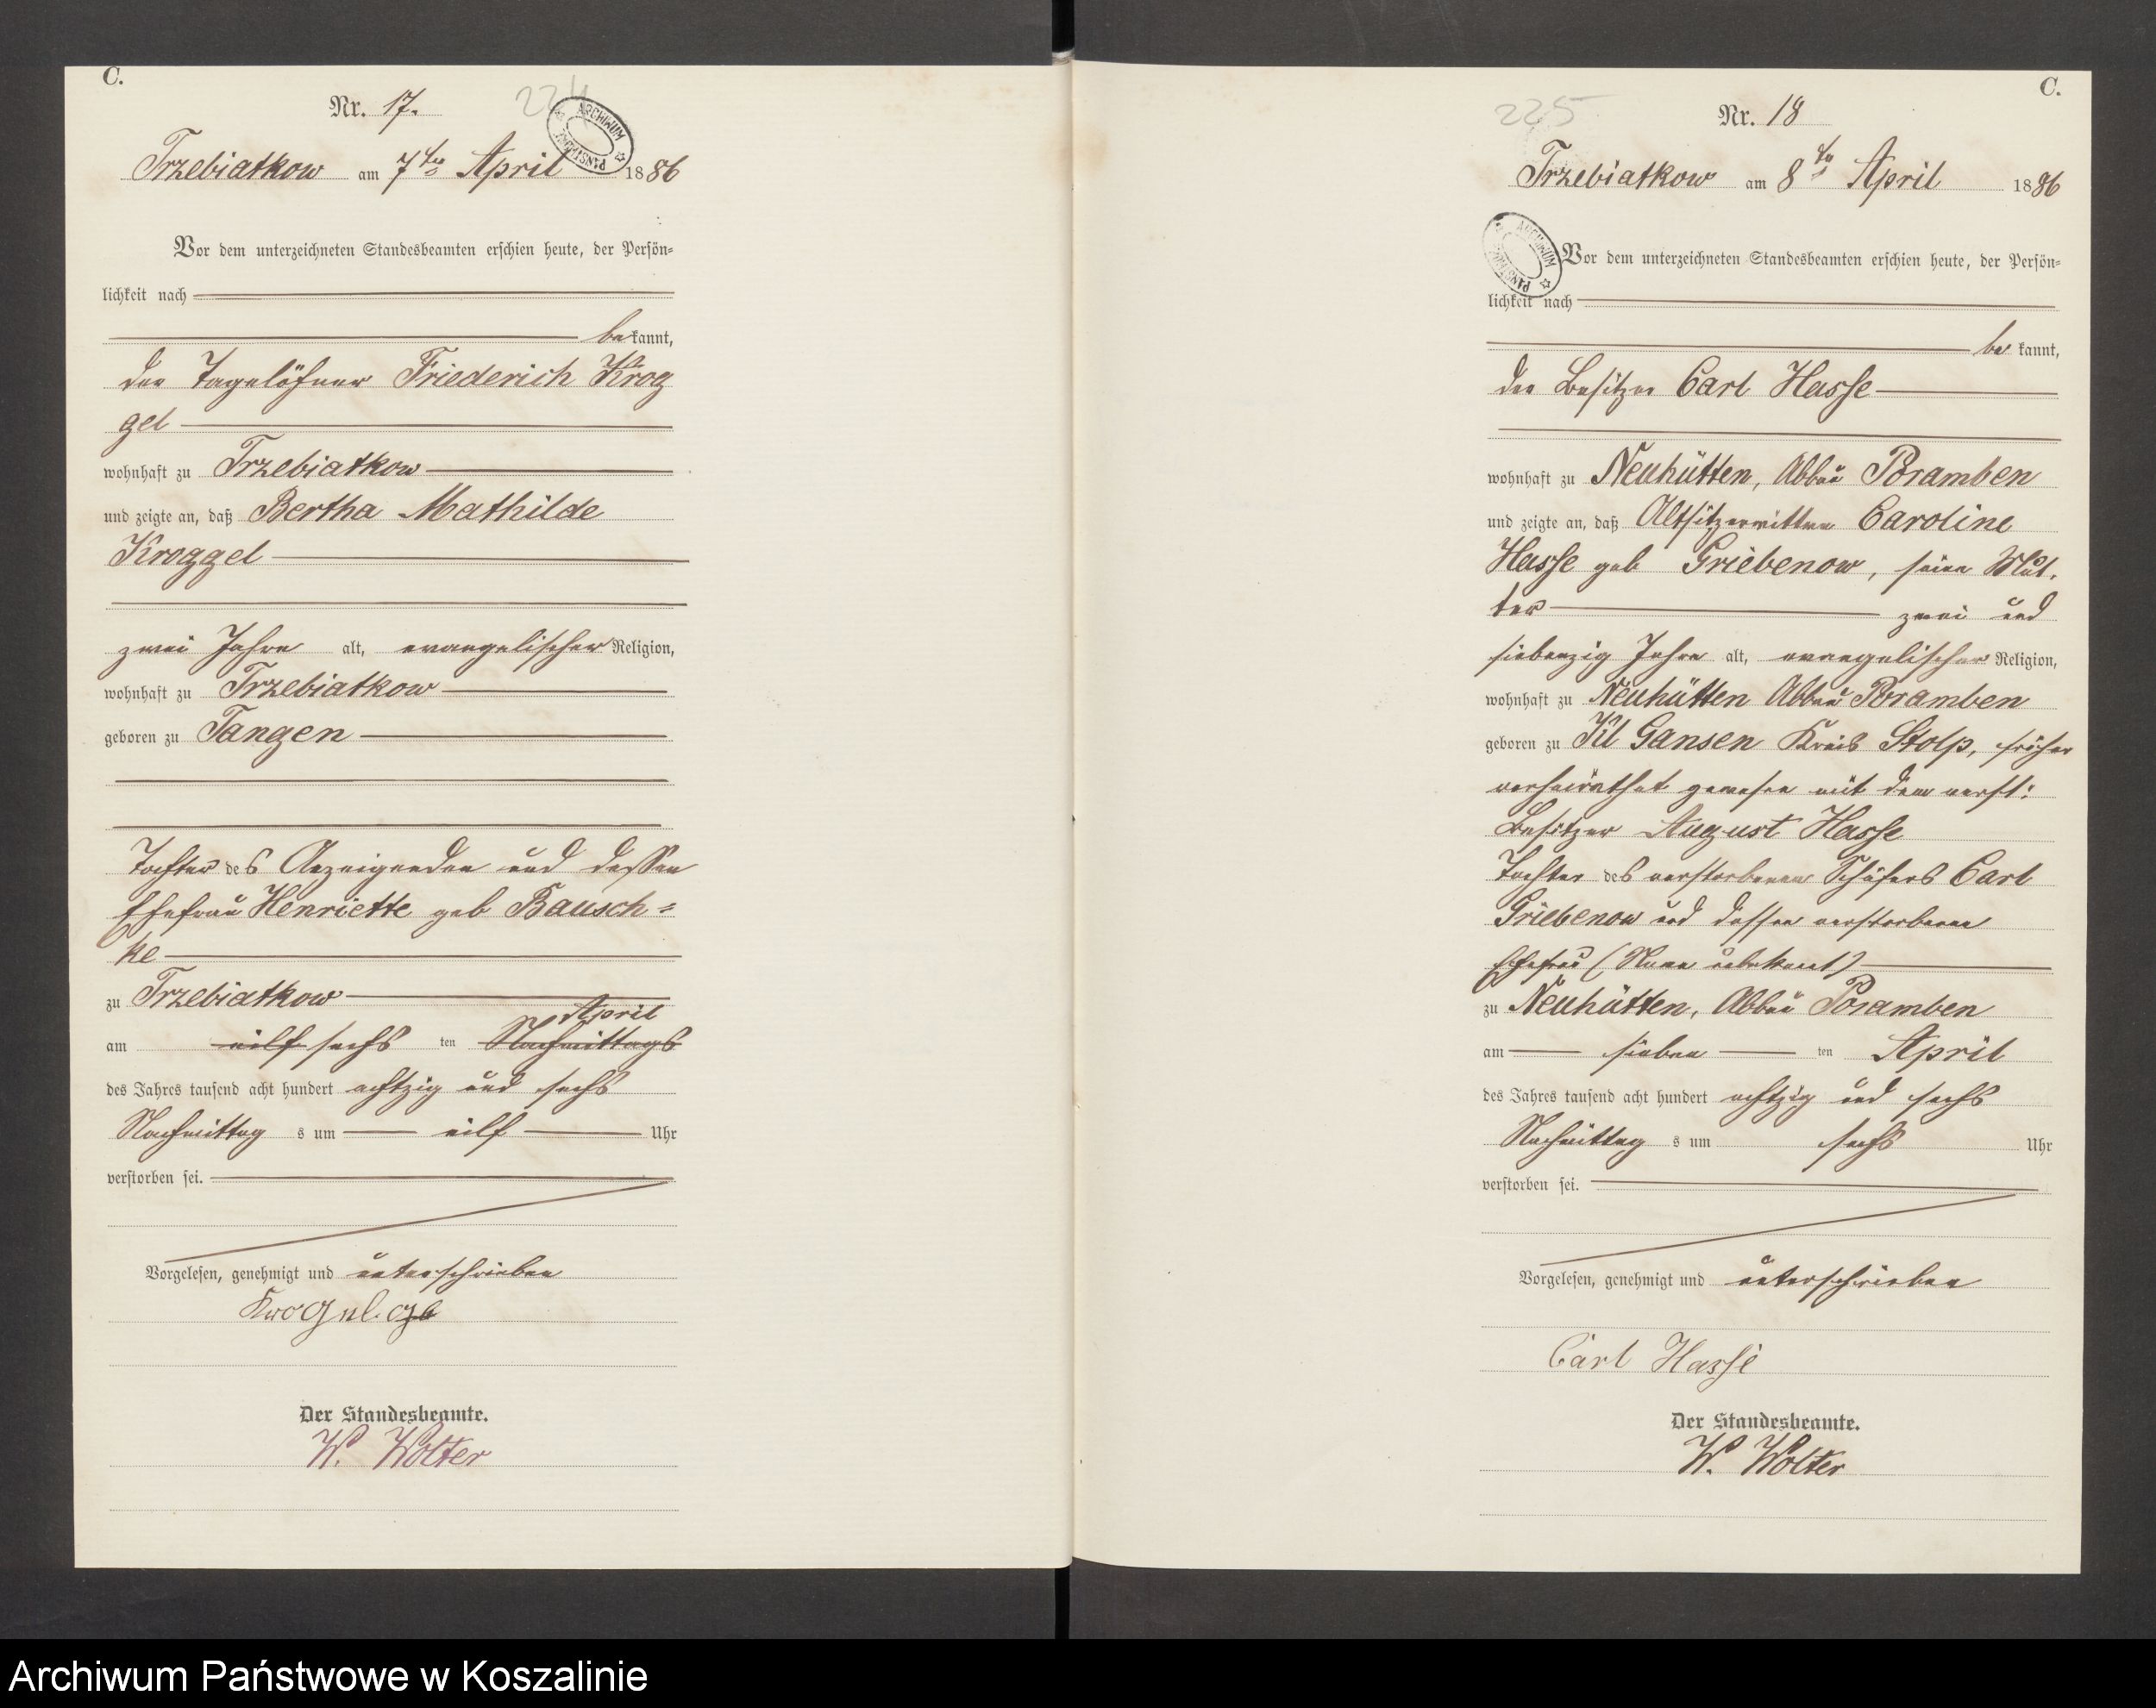 C.
Nr. 17.
224
ARCHIWUM PAŃSTWOWE
Trzebiatkow am 7ten April 1886
Vor dem unterzeichneten Standesbeamten erschien heute, der Persön-
lichkeit nach
bekannt,
der Tagelöhner Friederich Krog
gel
wohnhaft zu Trzebiatkow
und zeigte an, daß Bertha Mathilde
Kroggel
zwei Jahre alt, evangelischer Religion,
wohnhaft zu Trzebiatkow
geboren zu Tangen
Tochter des Anzeigenden und dessen
Ehefrau Henriette geb Bausch=
ke
zu Trzebiatkow
April
am eilf sechs ten Nachmittags
des Jahres tausend acht hundert achtzig und sechs
Nachmittag s um eilf Uhr
verstorben sei.
Vorgelesen, genehmigt und unterschrieben
Der Standesbeamte.
W. Wolter
C.
Nr. 18
225
Trzebiatkow am 8ten April 1886
ARCHIWUM PAŃSTWOWE
Vor dem unterzeichneten Standesbeamten erschien heute, der Persön-
lichkeit nach
be kannt,
der Besitzer Carl Hasse
wohnhaft zu Neuhütten, Abbau Poramben
und zeigte an, daß Altsitzerwittwe Caroline
Hasse geb Griebenow, seine Mut-
ter zwei und
siebenzig Jahre alt, evangelischer Religion,
wohnhaft zu Neuhütten Abbau Poramben
geboren zu Kl Gansen Kreis Stolp, früher
verheirathet gewesen mit dem verst:
Besitzer August Hasse
Tochter des verstorbenen Schäfers Carl
Griebenow und dessen verstorbene
Ehefrau (Name unbekant)
zu Neuhütten, Abbau Poramben
am sieben ten April
des Jahres tausend acht hundert achtzig und sechs
Nachmittag s um sechs Uhr
verstorben sei.
Vorgelesen, genehmigt und unterschrieben
Carl Hasse
Der Standesbeamte.
W. Wolter
Archiwum Państwowe w Koszalinie